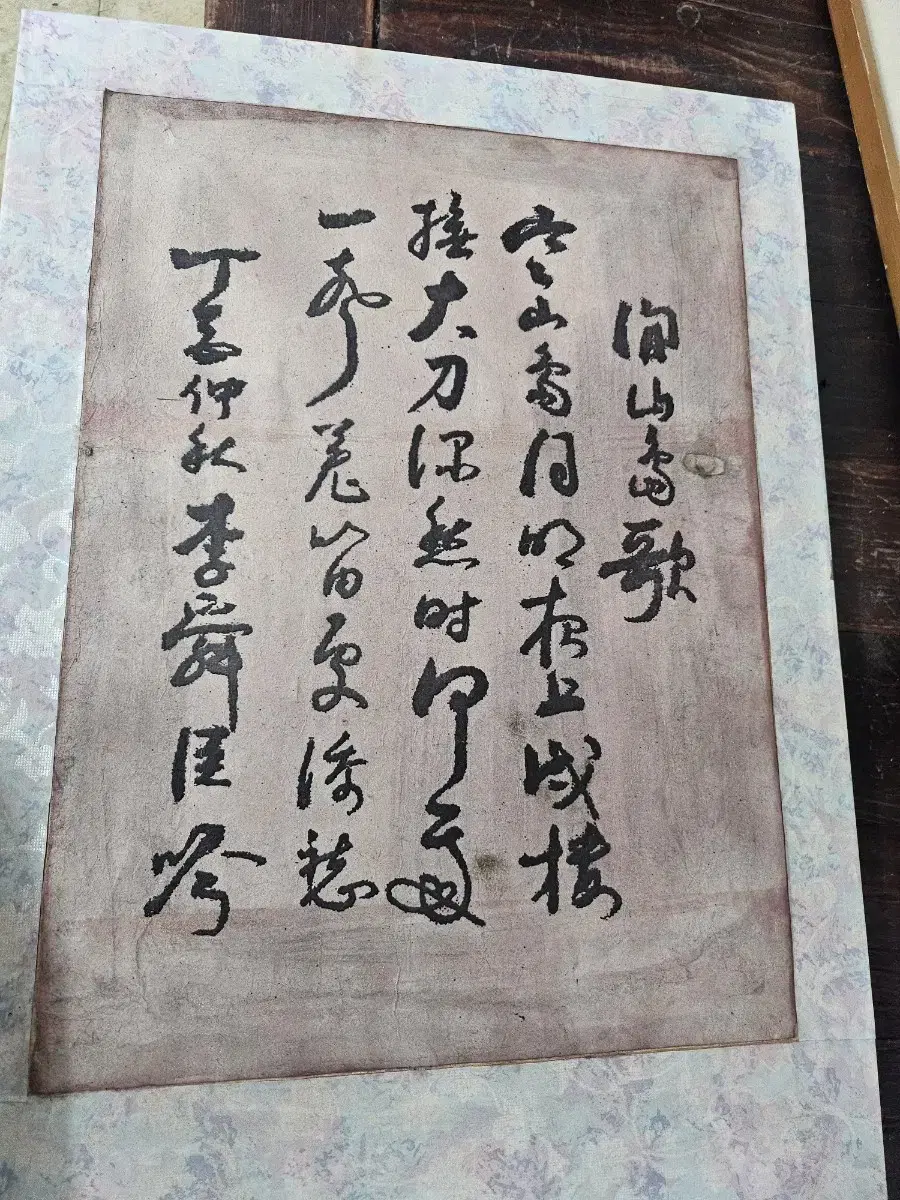 閑山島歌
寒山島月明夜上戍樓
撫大刀深愁時何處
一聲羌笛更添愁
丁亥仲秋 李舜臣 吟